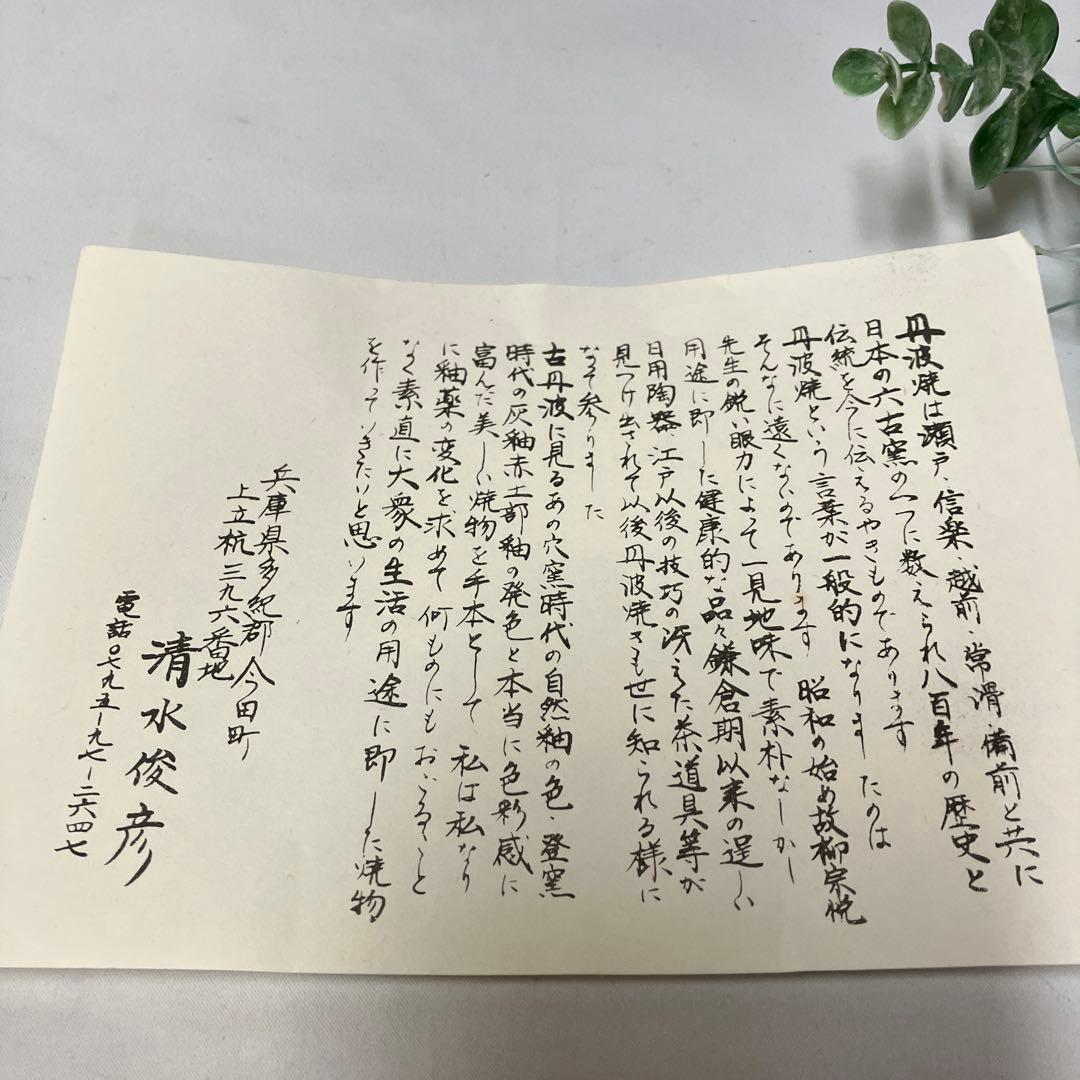 丹波焼は瀬戸・信楽・越前・常滑・備前と共に
日本の六古窯の一つに数えられ八百年の歴史と
伝統を今に伝えるやきものであります
丹波焼という言葉が一般的になりましたのは
そんなに遠くないのであります 昭和の始め故柳宗悦
先生の鋭い眼力によって一見地味で素朴なしかし
用途に即した健康的な品々鎌倉期以来の逞しい
日用陶器・江戸以後の技巧の冴えた茶道具等が
見つけ出されて以後丹波焼きも世に知られる様に
なって参りました
古丹波に見るあの穴窯時代の自然釉の色・登窯
時代の灰釉赤土部釉の発色と本当に色彩感に
富んだ美しい焼物を手本として 私は私なり
に釉薬の変化を求めて何ものにもおごること
なく素直に大衆の生活の用途に即した焼物
を作っていきたいと思います
兵庫県多紀郡今田町
上立杭三九六番地
清水俊彦
電話〇七九五-九七-二六四七